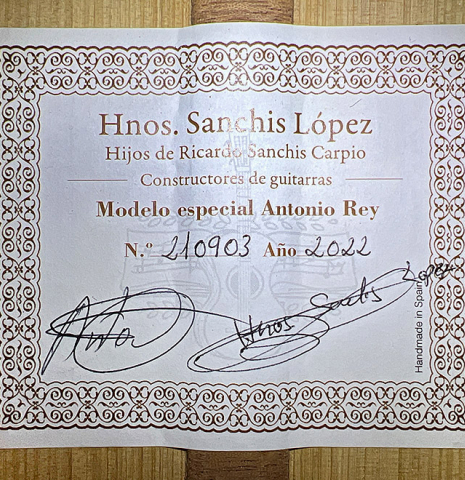 Hnos. Sanchis López
Hijos de Ricardo Sanchis Carpio
Constructores de guitarras
Modelo especial Antonio Rey
N.º 210903 Año 2022
Hnos Sanchis López
Handmade in Spain